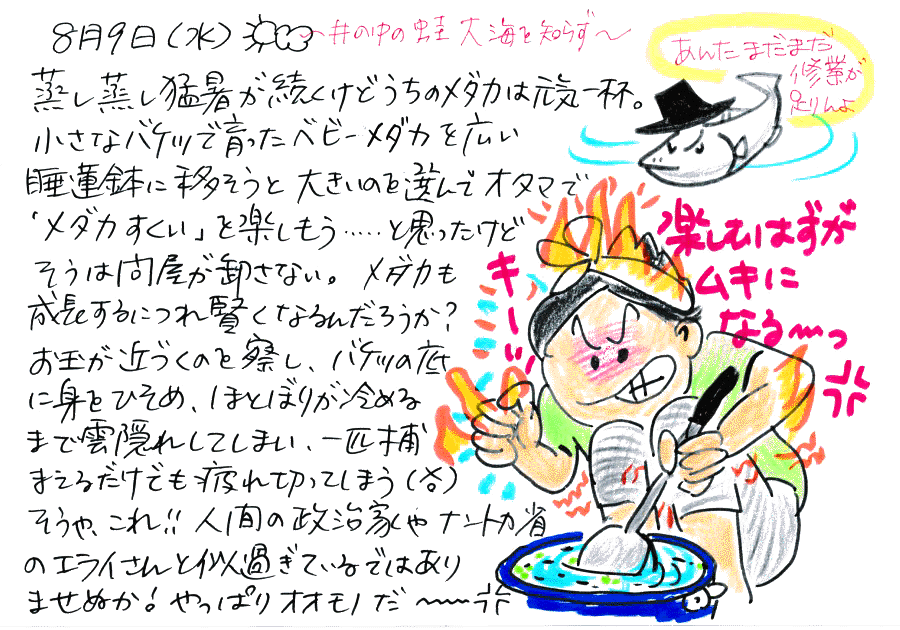 8月9日(水) ～井の中の蛙 大海を知らず～
あんた まだまだ
修業が
足りんよ
蒸し蒸し猛暑が続くけどうちのメダカは元気一杯。
小さなバケツで育ったベビーメダカを広い
睡蓮鉢に移そうと大きいのを選んでオタマで
「メダカすくい」を楽しもう……と思ったけど
そうは問屋が卸さない。メダカも
成長するにつれ賢くなるんだろうか？
お玉が近づくのを察し、バケツの底
に身をひそめ、ほとぼりが冷める
まで雲隠れしてしまい、一匹捕
まえるだけでも疲れ切ってしまう(答)
そうや、これ!! 人間の政治家やナントカ省
のエライさんと似過ぎているではあり
ませぬか! やっぱりオオモノだ～
キーッ
楽しむはずが
ムキに
なる～っ